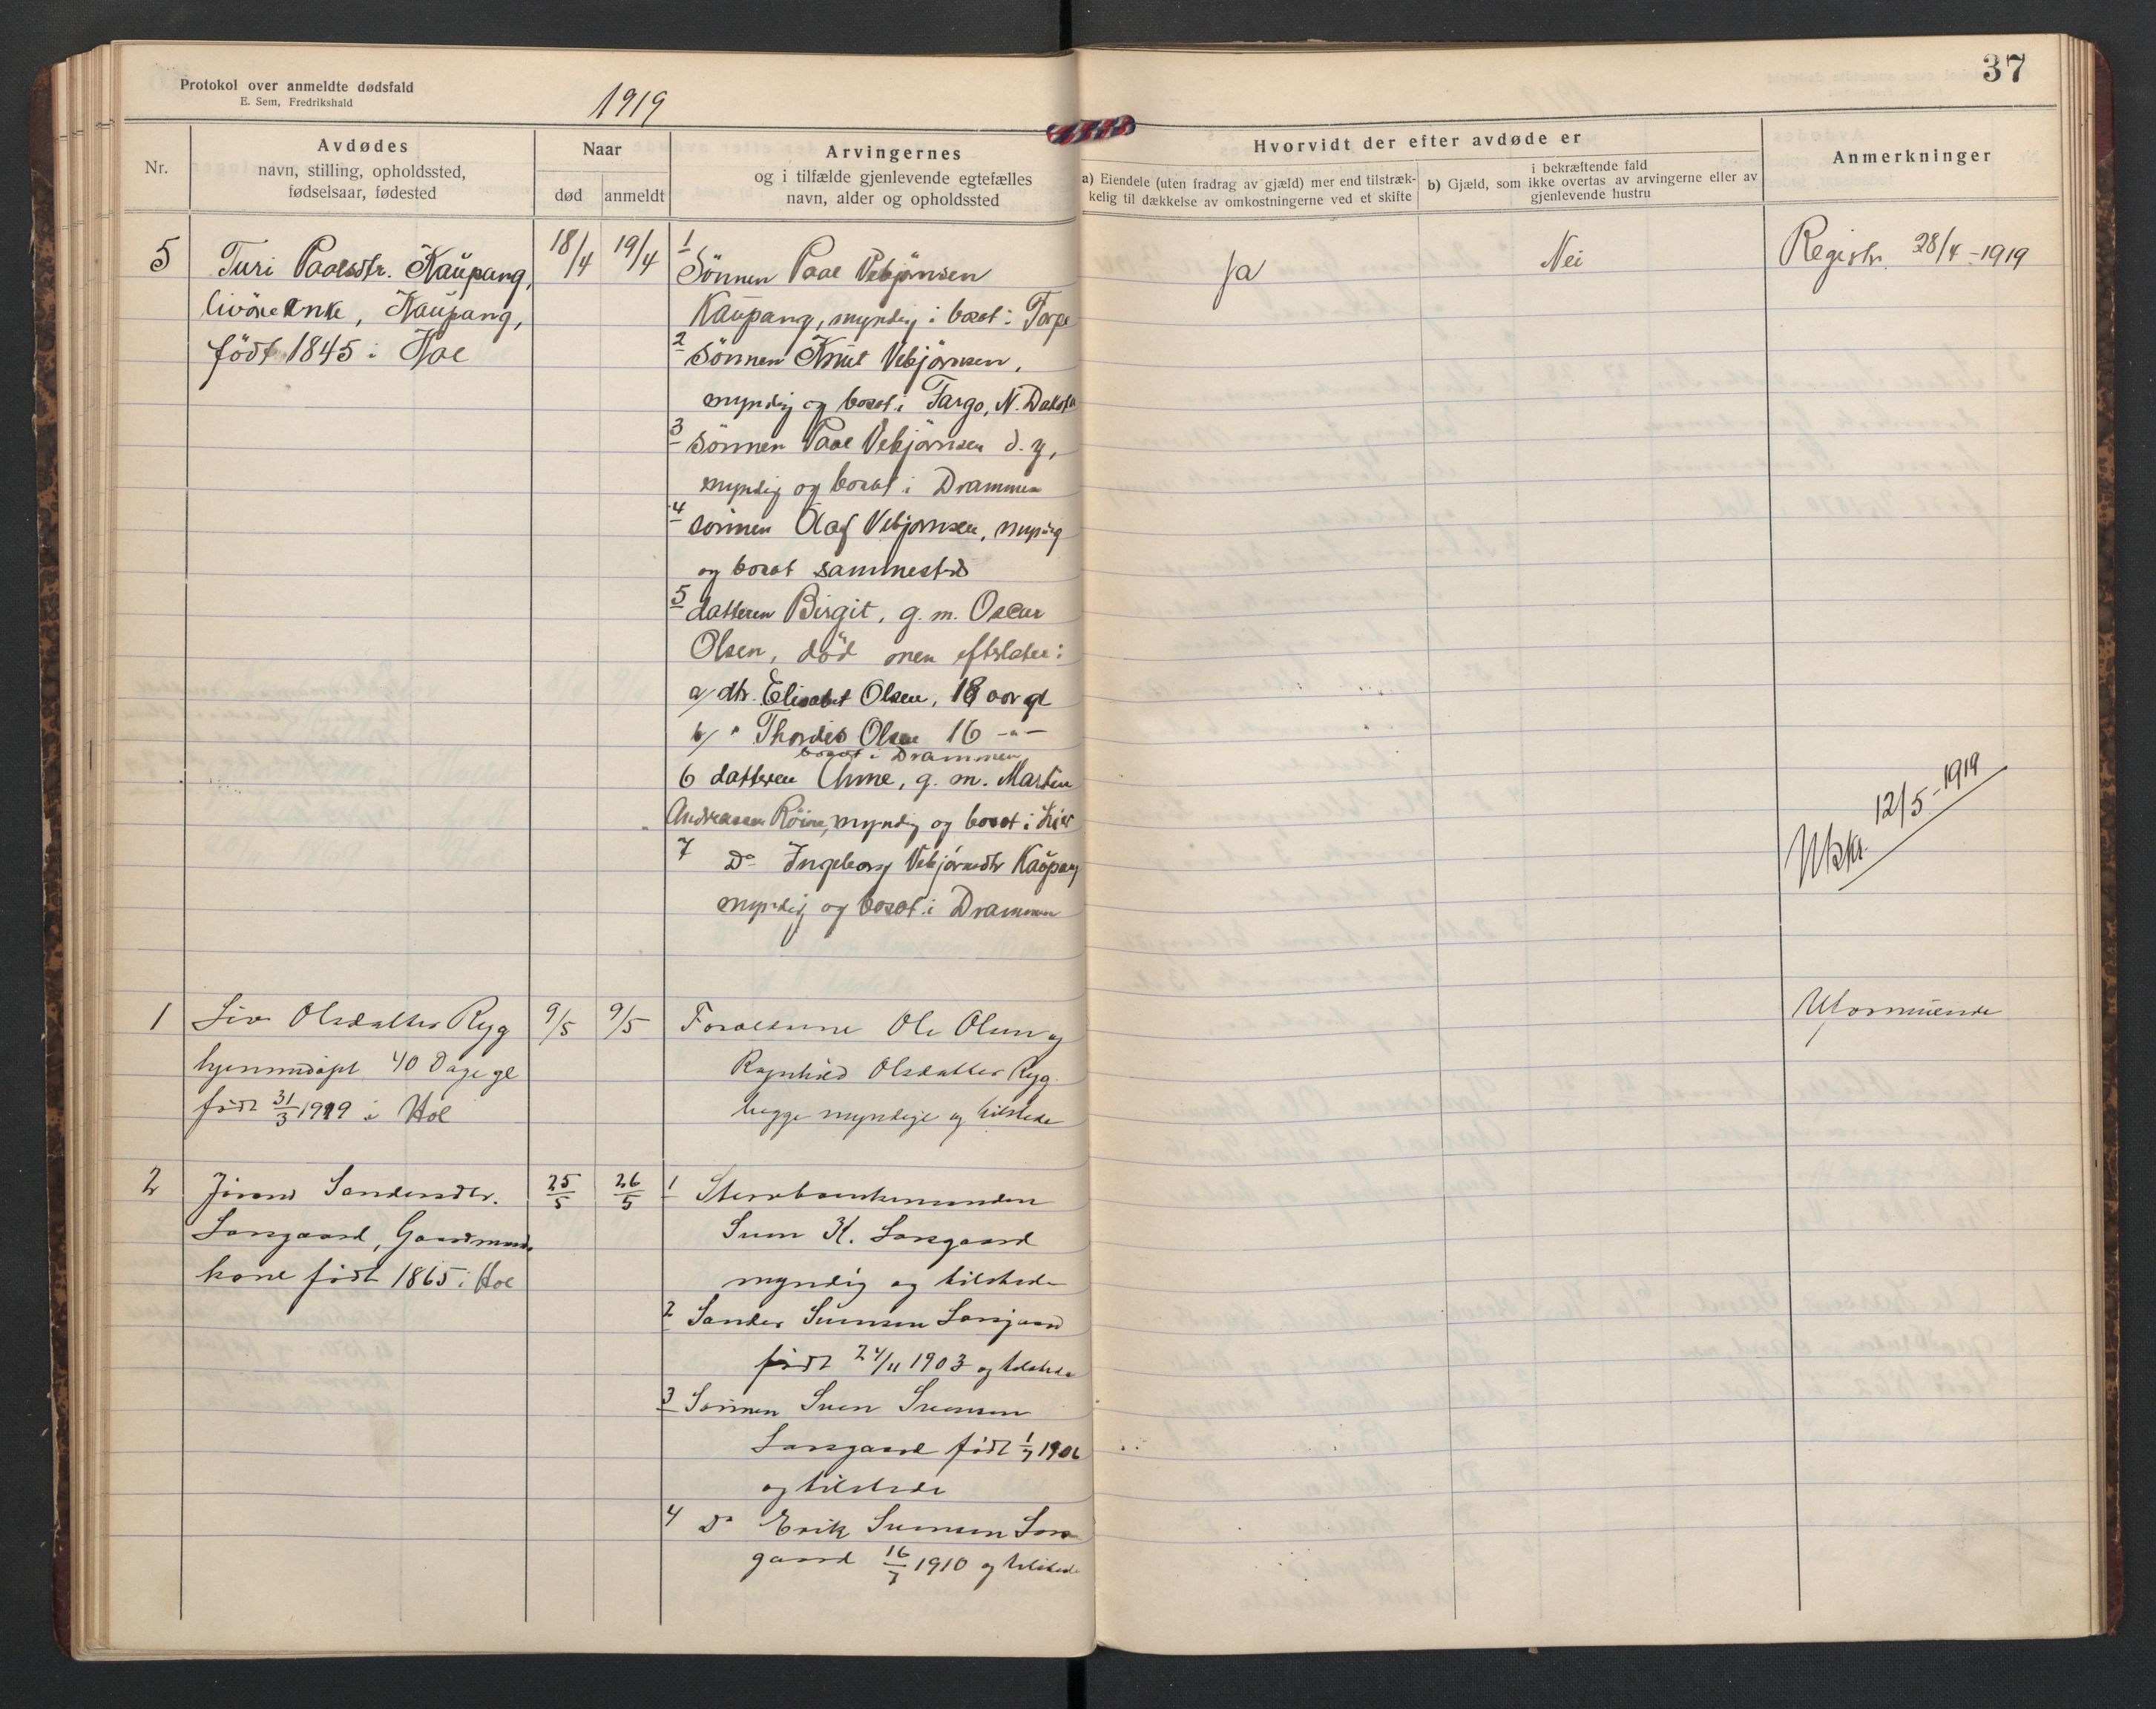 Protokol over anmeldte dødsfald
E. Sem, Fredrikshald
1919
37
Nr.
Avdødes
navn, stilling, opholdssted,
fødselsaar, fødested
Naar
død
anmeldt
Arvingernes
og i tilfælde gjenlevende egtefælles
navn, alder og opholdssted
Hvorvidt der efter avdøde er
a) Eiendele (uten fradrag av gjæld) mer end tilstræk-
kelig til dækkelse av omkostningerne ved et skifte
i bekræftende fald
b) Gjæld, som ikke overtas av arvingerne eller av
gjenlevende hustru
Anmerkninger
5
Turi Paalsdtr. Kaupang,
enke, Kaupang,
født 1845 i Hol
18/4
19/4
1
Sønnen Paal Vebjørnsen
Kaupang, myndig i bosat i Torpe
2 sønnen Knut Vebjørnsen,
myndig og bosat i Fargo, N. Dakota
3 sønnen Paal Vebjørnsen d.y,
myndig og bosat i Drammen
4 sønnen Olaf Vebjørnsen, myndig
og bosat sammesteds
5 datteren Birgit, g. m. Oscar
Olsen, død men efterlater:
a/ dtr. Elisabet Olsen, 18 aar gl
b/ " Thordis Olsen 16 -"-
bosat i Drammen
6 datteren Anne, g. m. Martin
Andreassen Røine, myndig og bosat i Lier
7 Do Ingeborg Vebjørnsdtr Kaupang
myndig og bosat i Drammen
Ja
Nei
Registr. 28/4-1919
12/5-1919
1
Liv Olsdatter Ryg
40 Dage gl
født 31/3 1919 i Hol
9/5
9/5
Forældrene Ole Olsen og
Ragnhild Olsdatter Ryg
begge myndige og tilstede
Uformuende
2
Jørand Sandersdtr.
Larsgaard, Gaardmands
kone født 1865 i Hol
25/5
26/5
1
Sterbo
Sven K. Larsgaard
myndig og tilstede
2 Sander Svensen Larsgaard
født 24/11 1903 og tilstede
3 Sønnen Sven Svensen
Larsgaard født 1/7 1906
og tilstede
4 Do Erik Svensen Lars
gaard 16/7 1910 og tilstede